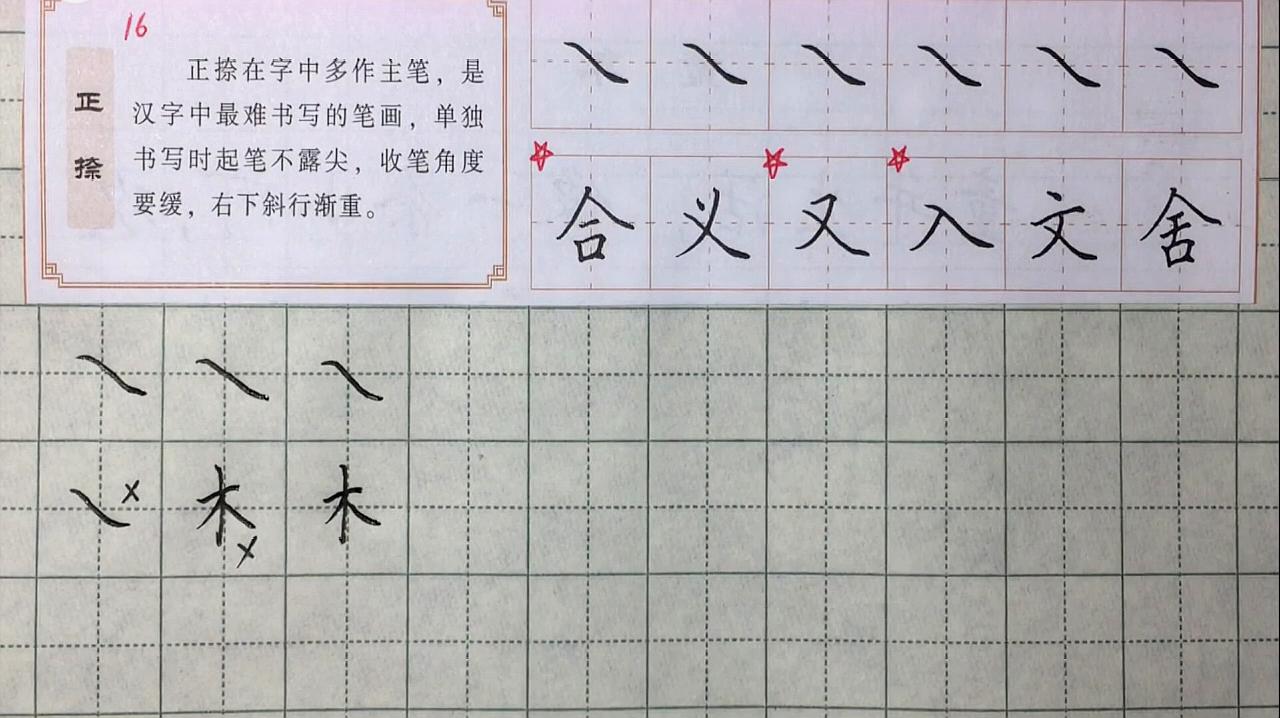 16
正捺
正捺在字中多作主笔，是
汉字中最难书写的笔画，单独
书写时起笔不露尖，收笔角度
要缓，右下斜行渐重。
㇏ ㇏ ㇏ ㇏ ㇏ ㇏
合 义 又 入 文 舍
㇏ ㇏ ㇏
㇏ × 木 × 木